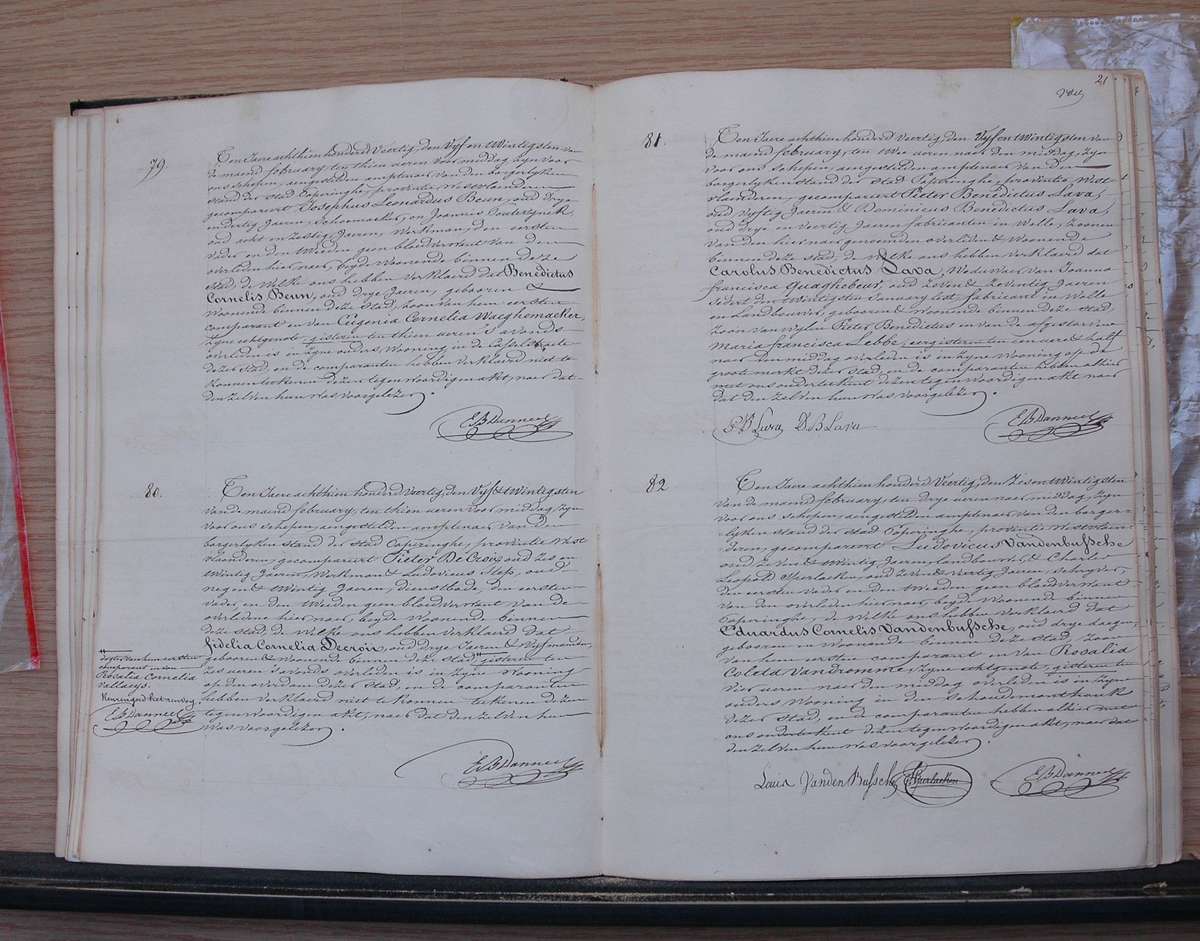 79.
Ten Jaere achthien honderd veertig, den Vyf en twintigsten van
de maend february, ten thien ueren voor middag, zyn voor
ons schepen, aengestelden amptenaer van den borgerlyken
stand der stad Poperinghe, provintie Westvlaenderen
gecompareert Josephus Leonardus Beun, oud drye
en dertig Jaeren, schoenmaeker, en Joannes
oud acht en zestig Jaeren, werkman, den eersten
vader en den tweeden geen bloedverwant van den
overleden hier naer, beyde woonende binnen deze
stad, de welke ons hebben verklaerd dat Benedictus
Cornelis Beun, oud drye Jaeren, geboren &
woonende binnen deze stad, zoon van hem eersten
comparant en van Eugenia Cornelia Waeghemaeker,
zyne echtgenote, gisteren ten thien ueren 's avonds
overleden is in zyne ouders wooning in de Casselstraete
dezer stad, en de comparanten hebben verklaerd niet te
konnen teekenen dezen tegenwoordigen akt, naer dat
den zelven hun was voorgelezen.
E B Danneel
80.
Ten Jaere achthien honderd veertig, den Vyf & twintigsten
van de maend february, ten thien ueren voor middag, zyn
voor ons schepen, aengestelden amptenaer van den
borgerlyken stand der stad Poperinghe, provintie West
vlaenderen, gecompareert Pieter De Croix, oud zes en
twintig Jaeren, werkman & Ludovicus oud
negen & twintig Jaeren, dienstbode, den eersten
vader en den tweeden geen bloedverwant van de
overledene hier naer, beyde woonende binnen
deze stad, de welke ons hebben verklaerd dat
Fidelia Cornelia Decroix, oud drye Jaeren & vyf maenden,
geboren & woonende binnen deze stad, gisteren ten
zes ueren 's avonds overleden is in zyne wooning
op den dezer stad, en de comparanten
hebben verklaerd niet te konnen teekenen dezen
tegenwoordigen akt, naer dat den zelven hun
was voorgelezen.
dogter van hem eersten
comparant en van
Rosalia Cornelia
Vallaeys.
E B Danneel
E B Danneel
21
81.
Ten Jaere achthien honderd veertig, den Vyf en twintigsten van
de maend february, ten twee ueren naer den middag, zyn
voor ons schepen, aengestelden amptenaer van den
borgerlyken stand der stad Poperinghe, provintie West
vlaenderen, gecompareert Pieter Benedictus Lava,
oud vyftig Jaeren & Dominicus Benedictus Lava,
oud drye en veertig Jaeren, fabricanten in wolle, zoonen
van den hier naer genoemden overleden & woonende
binnen deze stad, de welke ons hebben verklaerd dat
Carolus Benedictus Lava, weduwaer van Joanna
Francisca Quaghebeur, oud zeven & zeventig Jaeren
sedert den twintigsten January lest, fabricant in wolle
en landbouwer, geboren & woonende binnen deze stad,
zoon van wylen Pieter Benedictus en van de afgestorvene
Maria Francisca Lebbe, eergisteren ten een uere & half
naer den middag overleden is in zyne wooning op de
groote merkt dezer stad, en de comparanten hebben alhier
met ons onderteekent dezen tegenwoordigen akt naer
dat den zelven hun was voorgelezen.
P B Lava D B Lava E B Danneel
82
Ten Jaere achthien honderd veertig, den Zes en twintigsten
van de maend february, ten drye ueren naer middag, zyn
voor ons schepen, aengestelden amptenaer van den borger-
lyken stand der stad Poperinghe, provintie Westvlaen-
deren, gecompareert Ludovicus Vandenbussche
oud zeven & twintig Jaeren, landbouwer, & Charles
Leopold Yperlaeken, oud zeven & veertig Jaeren, schryver,
den eersten vader en den tweeden geen bloedverwant
van den overleden hier naer, beyde woonende binnen
Poperinghe, de welke ons hebben verklaerd dat
Eduardus Cornelis Vandenbussche, oud drye daegen,
geboren en woonende binnen deze stad, zoon
van hem eersten comparant en van Rosalia
Coleta Vandromme, zyne echtgenote, gisteren ten
vier ueren naer den middag overleden is in zyne
ouders wooning in den Schaedmonthoek
dezer stad, en de comparanten hebben alhier met
ons onderteekent dezen tegenwoordigen akt, naer dat
den zelven hun was voorgelezen.
Louis VandenBussche Yperlaeken E B Danneel